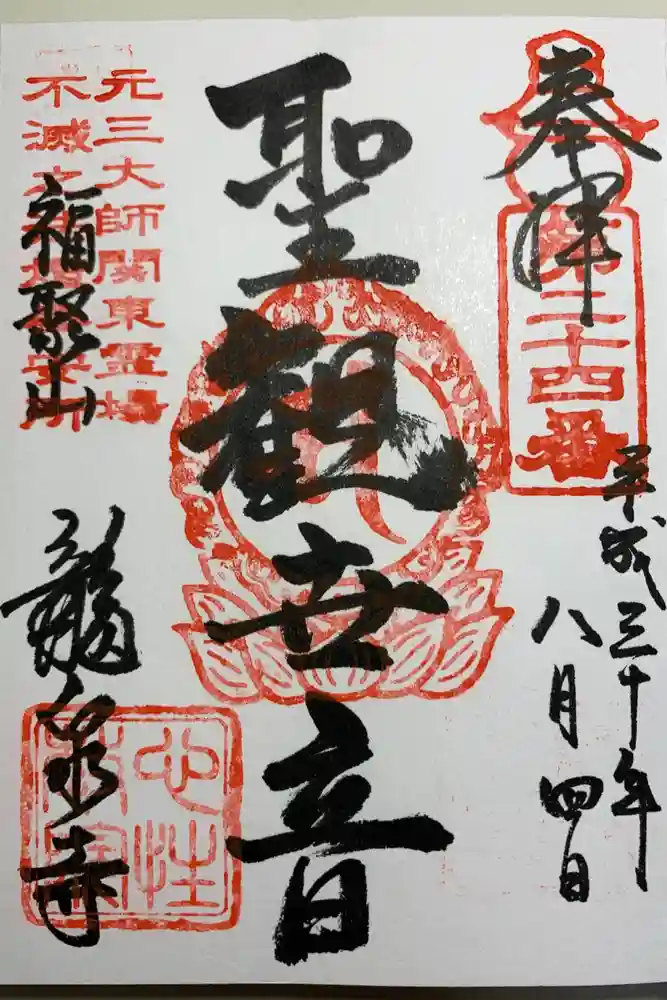 奉拝
第二十四番
平成三十年
八月四日
聖觀世音
元三大師関東霊場
不滅之
福聚山
龍泉寺
心性